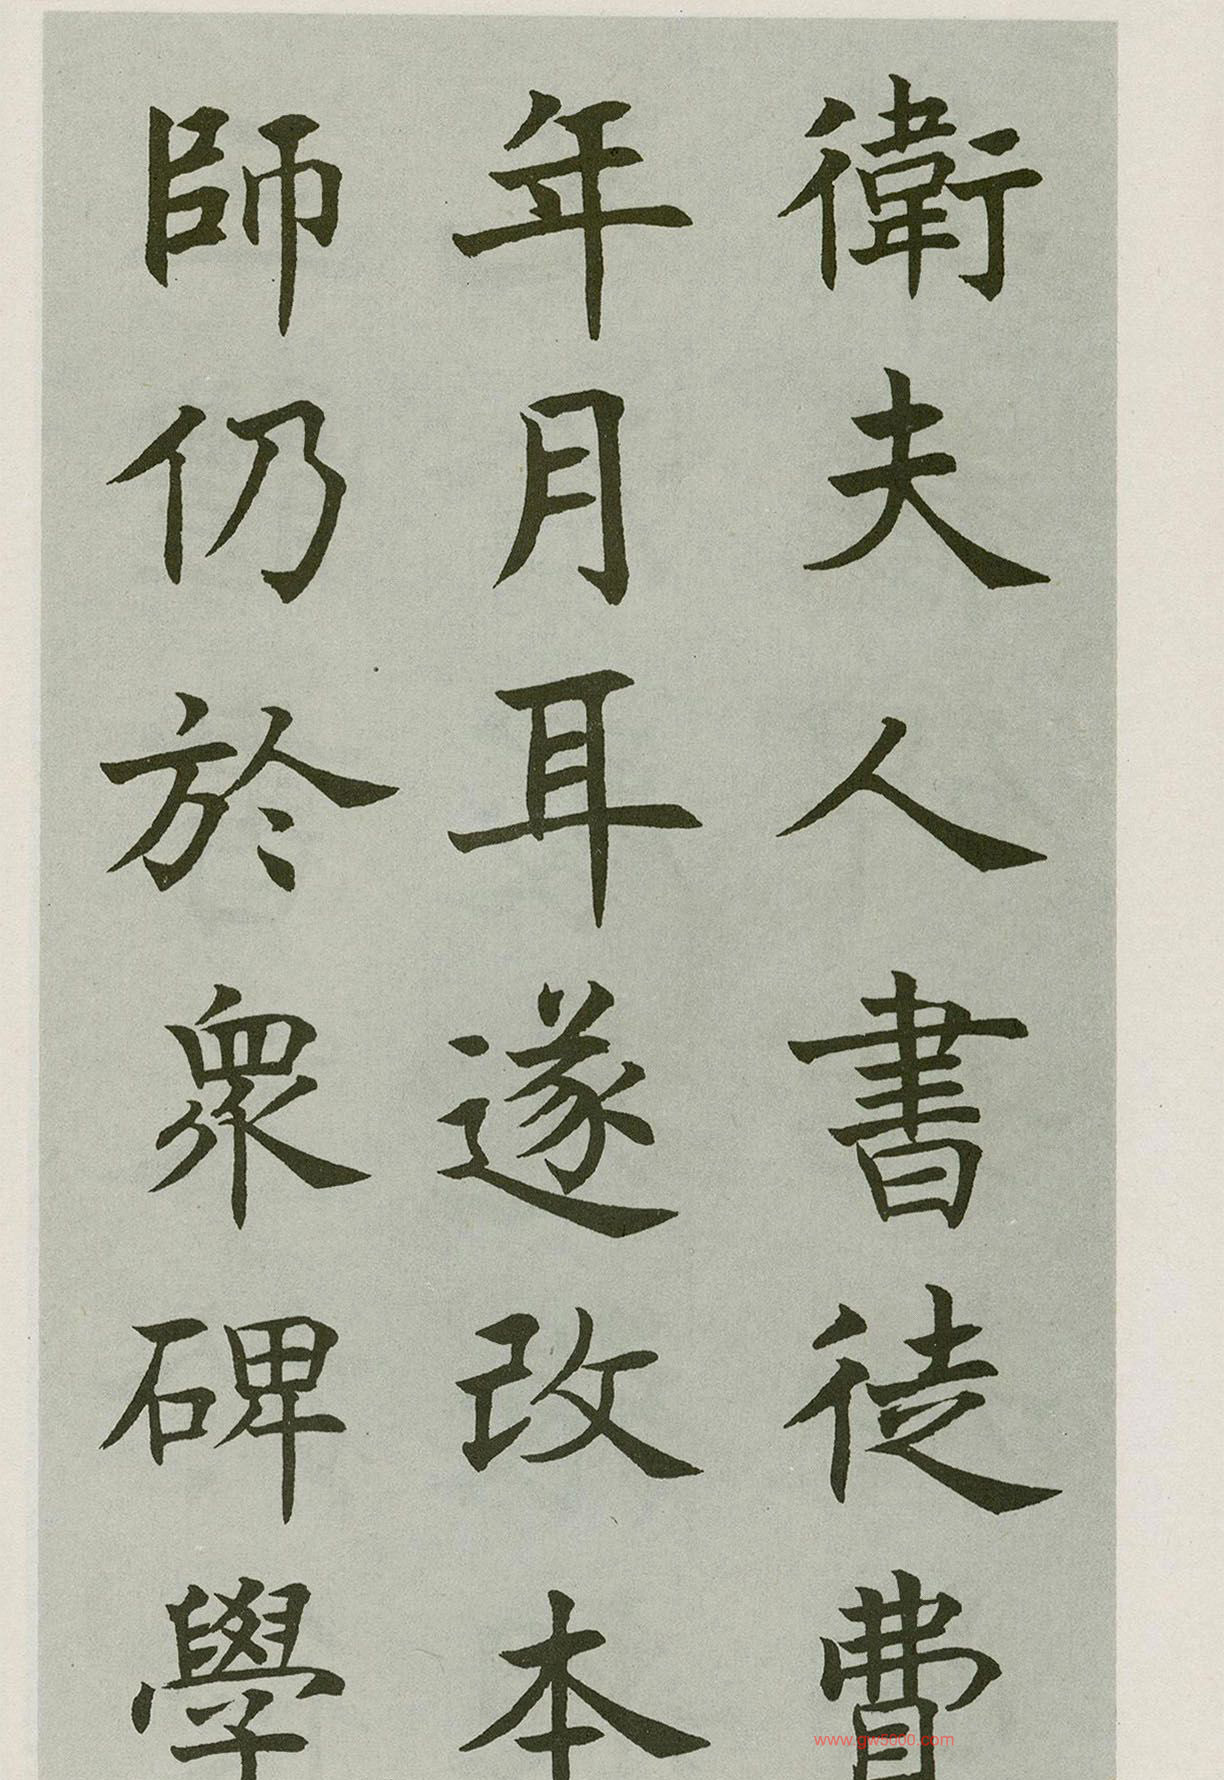 衛夫人書徒費
年月耳遂改本
師仍於衆碑學
www.gw5000.com